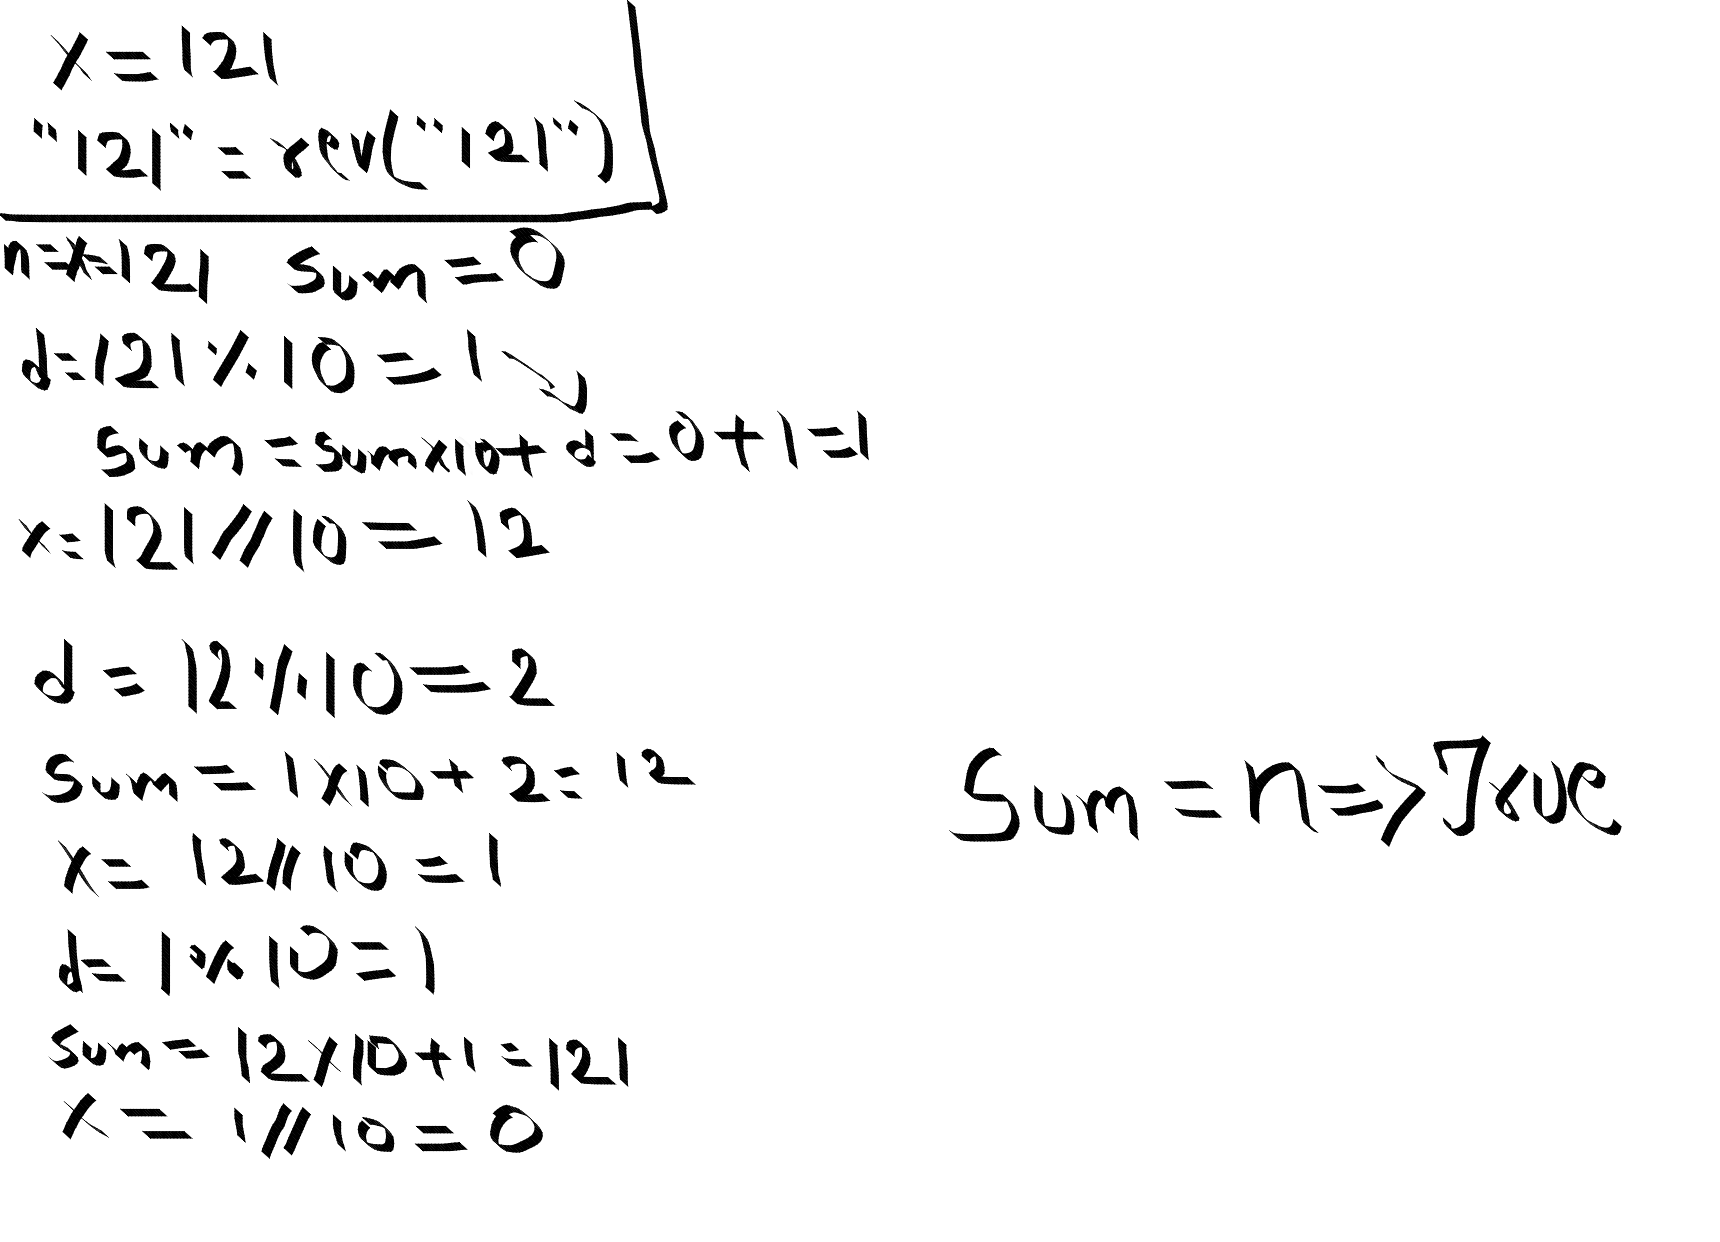 x = 121
"121" = rev("121")
n=x=121 sum = 0
d=121 % 10 = 1
sum = sum×10+ d = 0 + 1 = 1
x= 121 // 10 = 12
d = 12 % 10 = 2
sum = 1 × 10 + 2 = 12
sum = n => True
x = 12 // 10 = 1
d = 1 % 10 = 1
sum = 12 × 10 + 1 = 121
x = 1 // 10 = 0